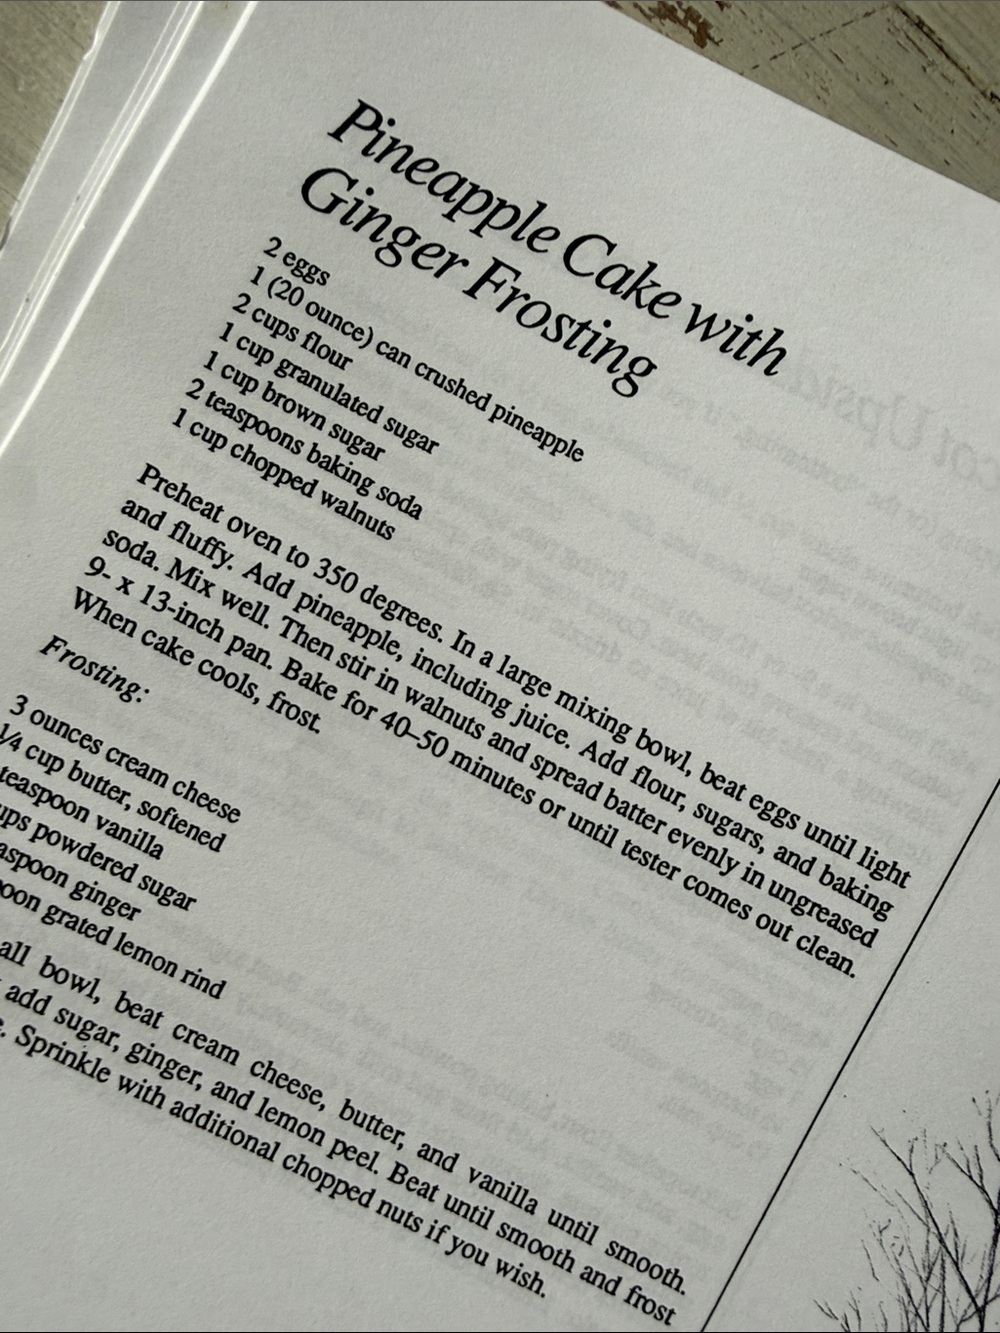 Pineapple Cake with
Ginger Frosting
2 eggs
1 (20 ounce) can crushed pineapple
2 cups flour
1 cup granulated sugar
1 cup brown sugar
2 teaspoons baking soda
1 cup chopped walnuts
Preheat oven to 350 degrees. In a large mixing bowl, beat eggs until light
and fluffy. Add pineapple, including juice. Add flour, sugars, and baking
soda. Mix well. Then stir in walnuts and spread batter evenly in ungreased
9- x 13-inch pan. Bake for 40–50 minutes or until tester comes out clean.
When cake cools, frost.
Frosting:
3 ounces cream cheese
1/4 cup butter, softened
teaspoon vanilla
powdered sugar
ginger
grated lemon rind
bowl, beat cream cheese, butter, and vanilla until smooth.
add sugar, ginger, and lemon peel. Beat until smooth and frost
Sprinkle with additional chopped nuts if you wish.